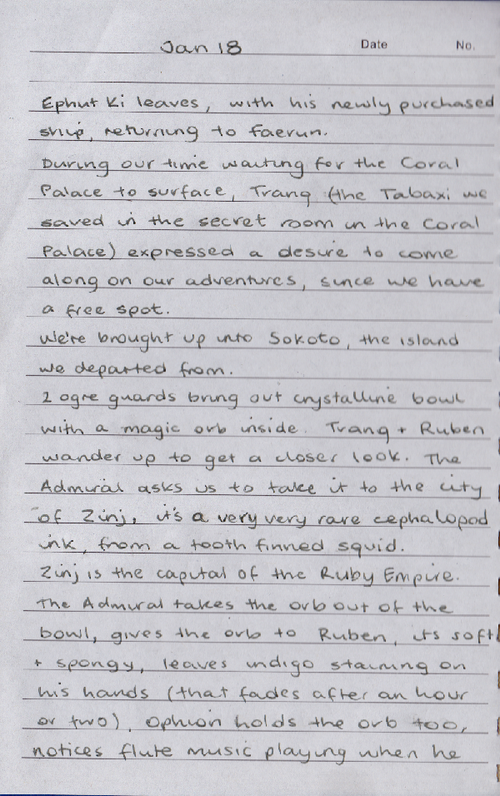 Jan 18 Date No.
Ephut Ki leaves, with his newly purchased
ship, returning to Faerun.
During our time waiting for the Coral
Palace to surface, Trang (the Tabaxi we
saved in the secret room in the Coral
Palace) expressed a desire to come
along on our adventures, since we have
a free spot.
We're brought up into Sokoto, the island
we departed from.
2 ogre guards bring out crystalline bowl
with a magic orb inside. Trang + Ruben
wander up to get a closer look. The
Admiral asks us to take it to the city
of Zinj, it's a very very rare cephalopod
ink, from a tooth finned squid.
Zinj is the capital of the Ruby Empire.
The Admiral takes the orb out of the
bowl, gives the orb to Ruben, its soft
+ spongy, leaves indigo staining on
his hands (that fades after an hour
or two). Ophion holds the orb too,
notices flute music playing when he